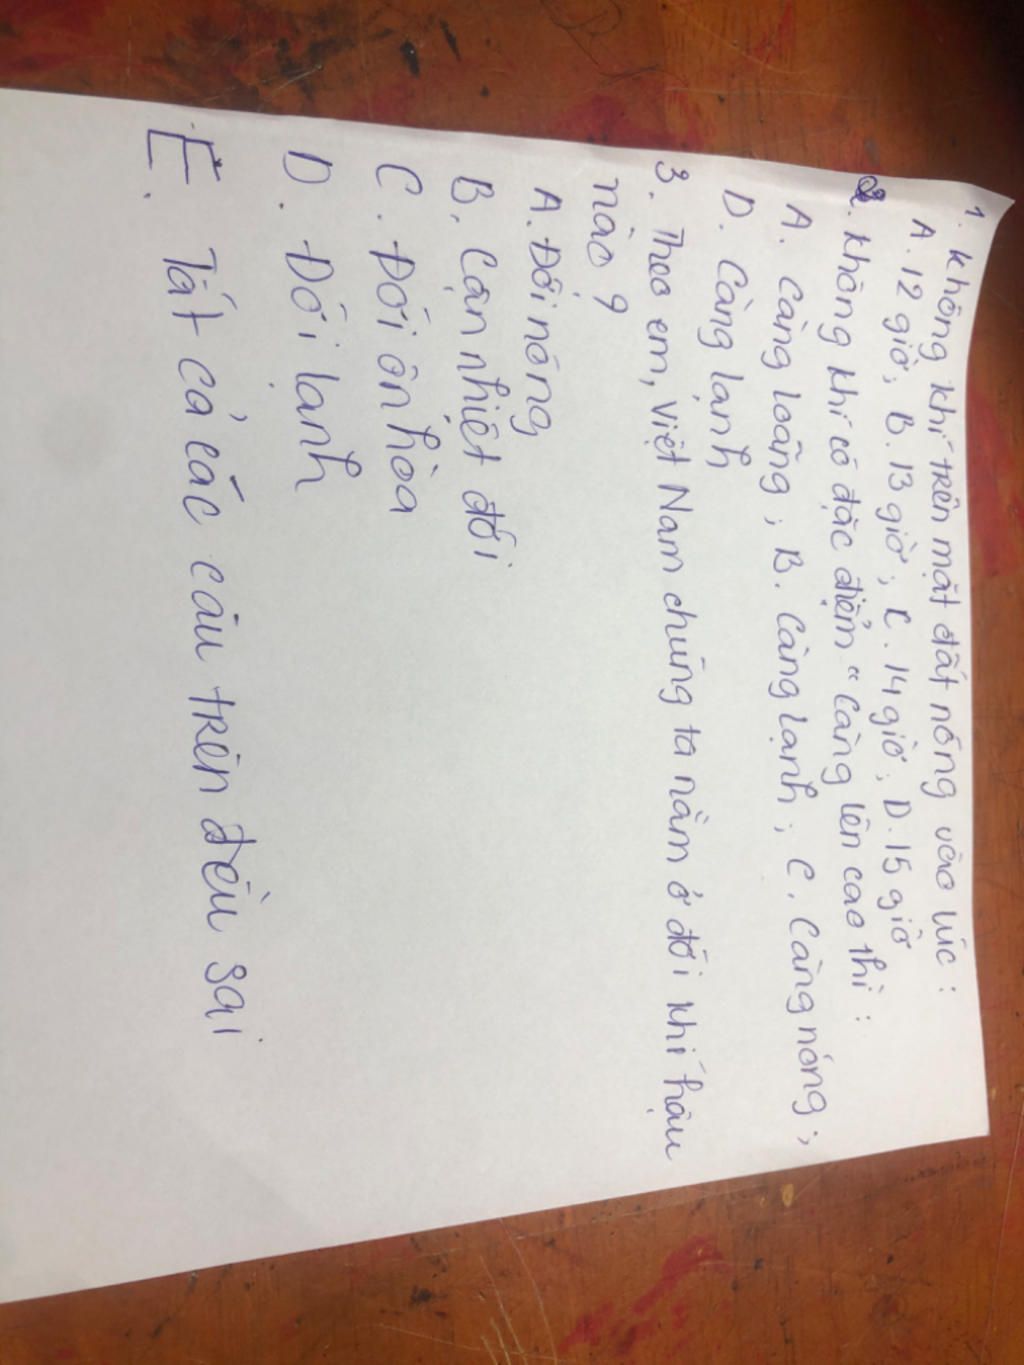 1. Không khí trên mặt đất nóng vào lúc:
A. 12 giờ; B. 13 giờ; C. 14 giờ; D. 15 giờ
2. Không khí có đặc điểm "Càng lên cao thì:
A. Càng loãng; B. Càng lạnh; C. Càng nóng;
D. Càng lạnh
3. Theo em, Việt Nam chúng ta nằm ở đới khí hậu
nào?
A. Đới nóng
B. Cận nhiệt đới
C. Đới ôn hòa
D. Đới lạnh
E. Tất cả các câu trên đều sai